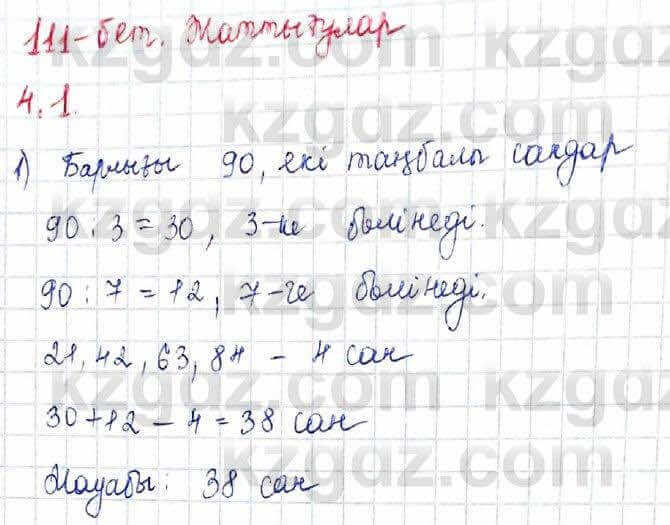 111-бет. Жаттығулар
4.1.
1) Барлығы 90, екі таңбалы сандар
90 : 3 = 30, 3-ке бөлінеді.
90 : 7 = 12, 7-ге бөлінеді.
21, 42, 63, 84 - 4 сан
30 + 12 - 4 = 38 сан
Жауабы: 38 сан
kzgaz.com